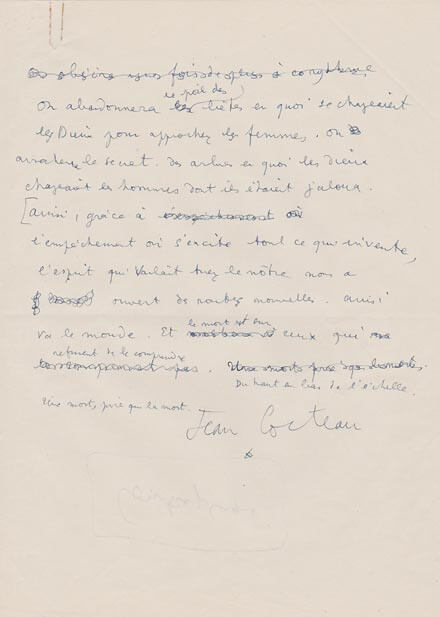 le poil des
On abandonnera les bêtes en quoi se changeaient
les Dieux pour approcher les femmes. On
arrachera le secret des arbres en quoi les dieux
changeaient les hommes dont ils étaient jaloux.
[Ainsi, grâce à
l'empêchement où s'excite tout ce qui invente,
l'esprit qui voulait tuer le nôtre nous a
ouvert des routes nouvelles. Ainsi
le mort est sur
va le monde. Et ceux qui
refusent de le comprendre
Du haut en bas de l'échelle.
Une mort, pire que la mort.
Jean Cocteau